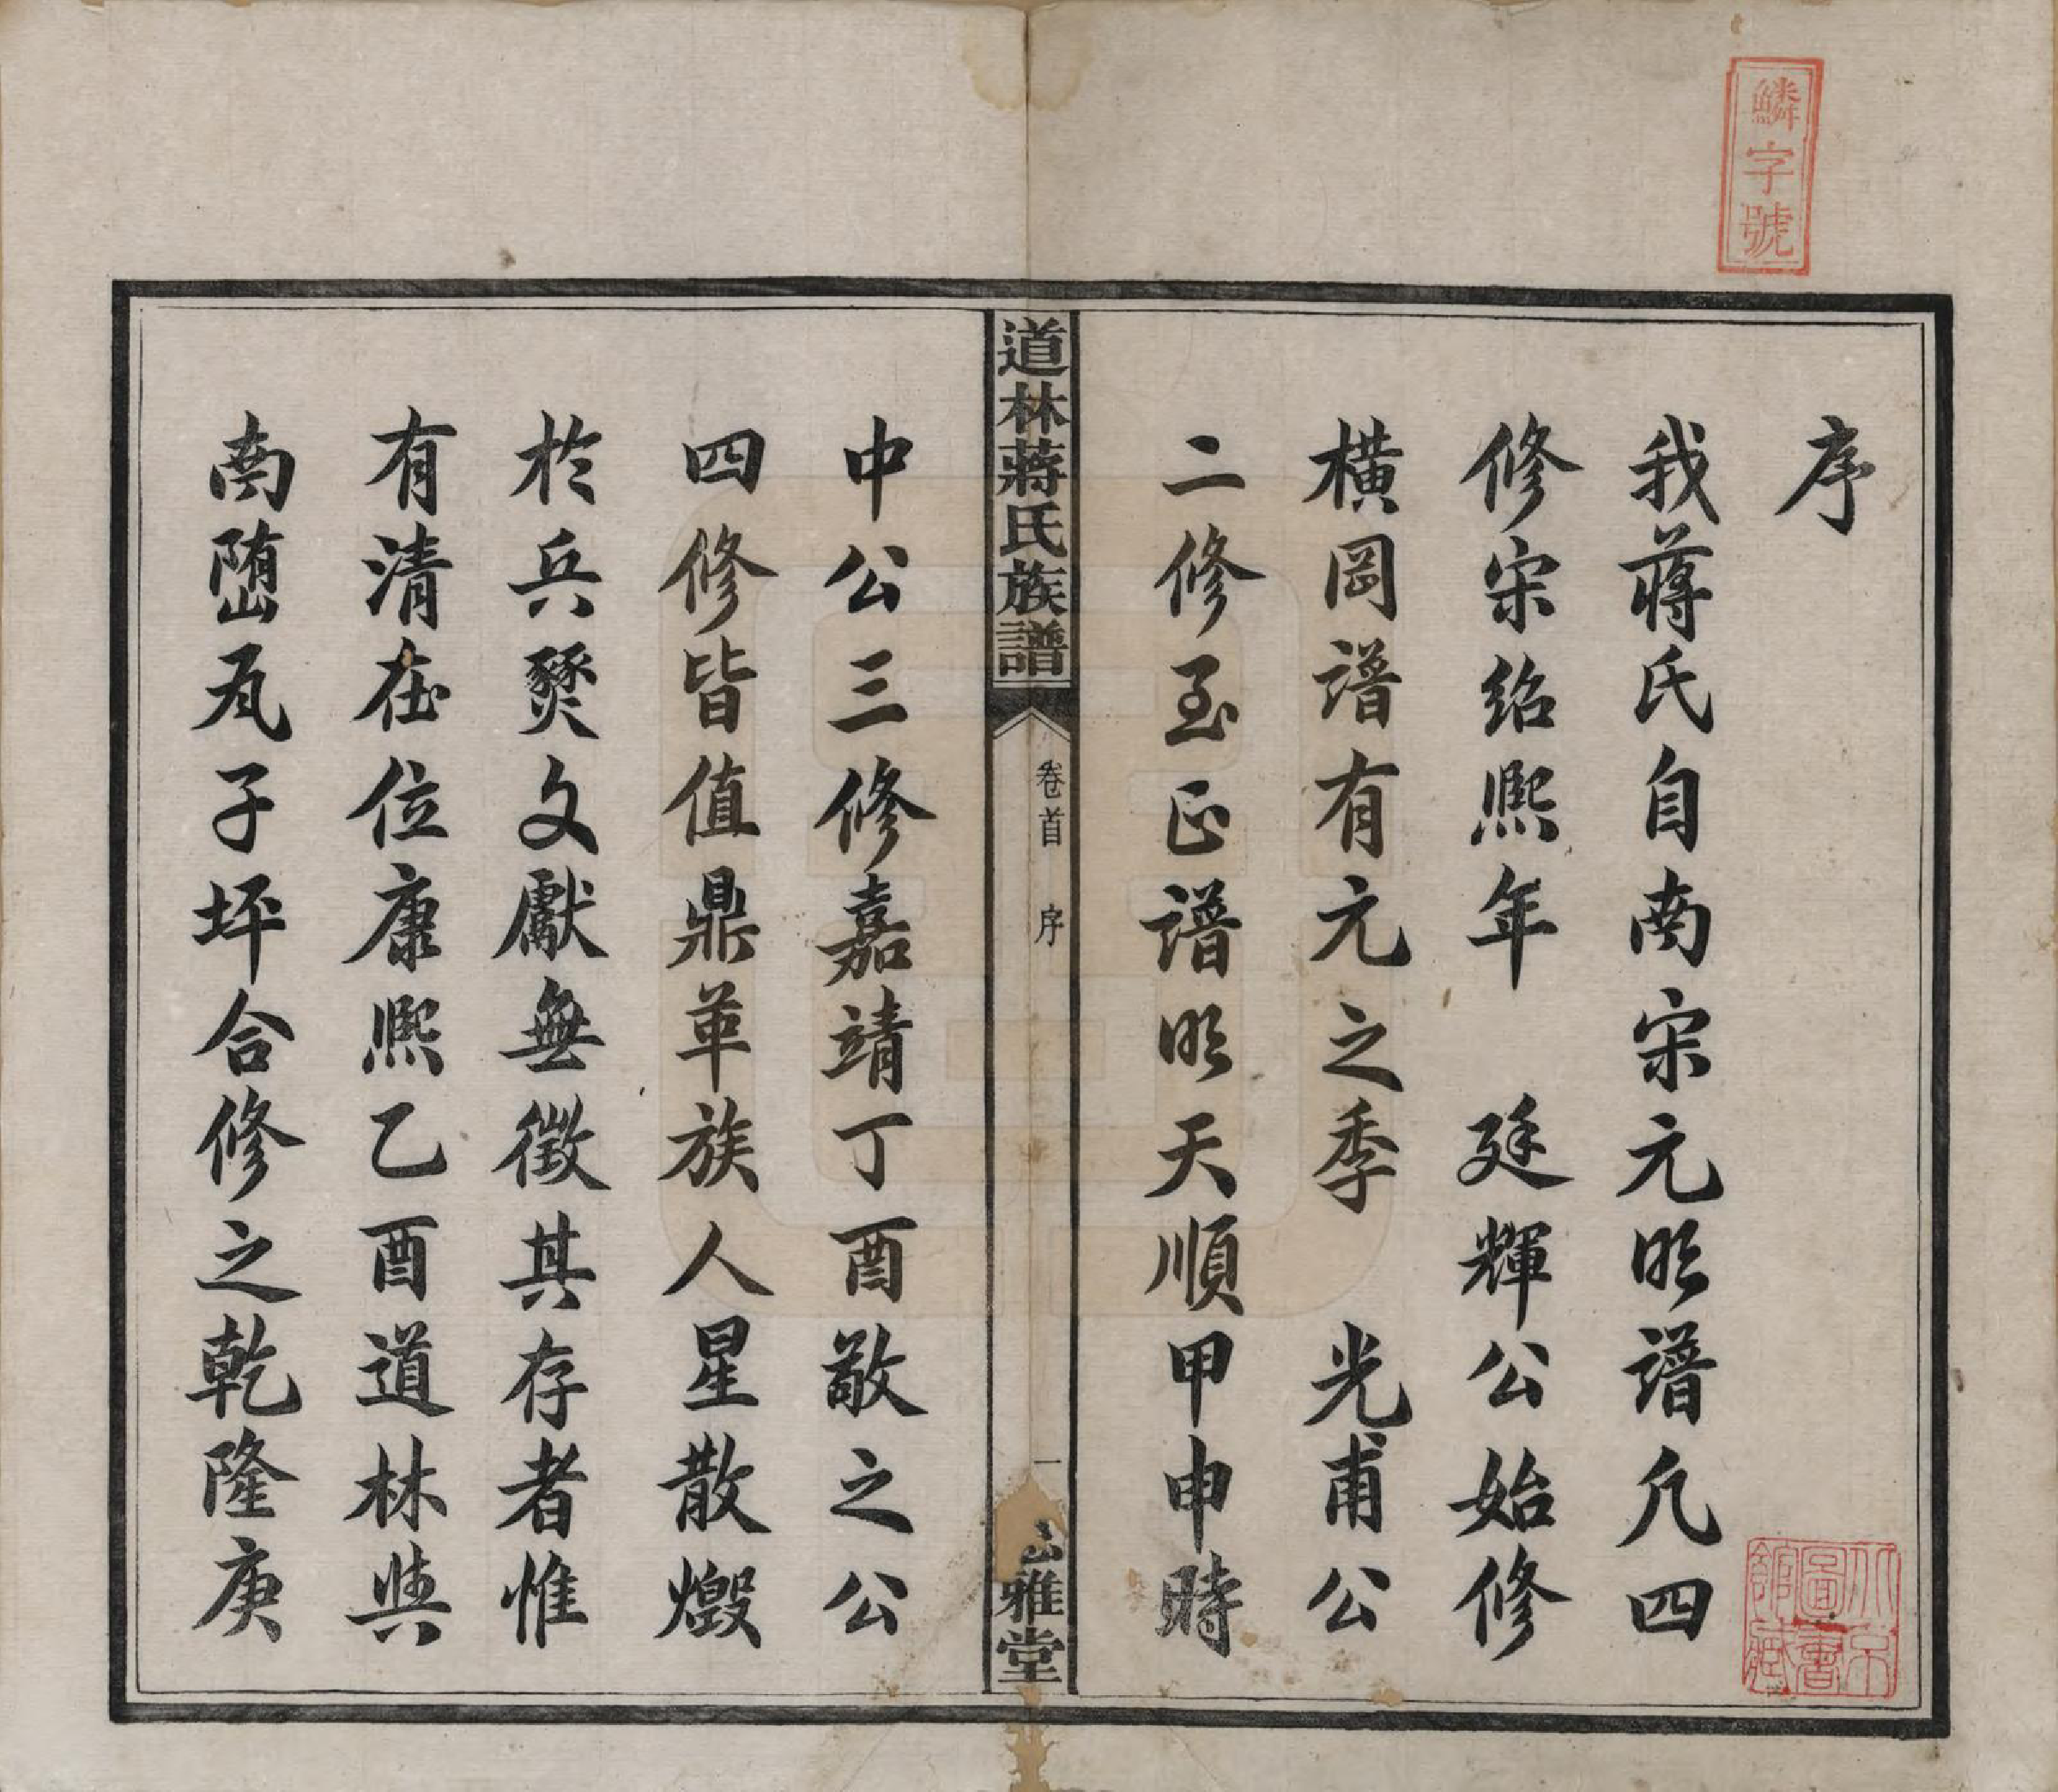 鱗字號
序
我蔣氏自南宋元明譜凡四
修宋紹熙年 廷輝公始修
橫岡譜有元之季 光甫公
二修至正譜明天順甲申時
道林蔣氏族譜
卷首 序
一
雅堂
中公三修嘉靖丁酉敬之公
四修皆值鼎革族人星散燬
於兵燹文獻無徵其存者惟
有清在位康熙乙酉道林與
南嶞瓦子坪合修之乾隆庚
北京圖書館藏